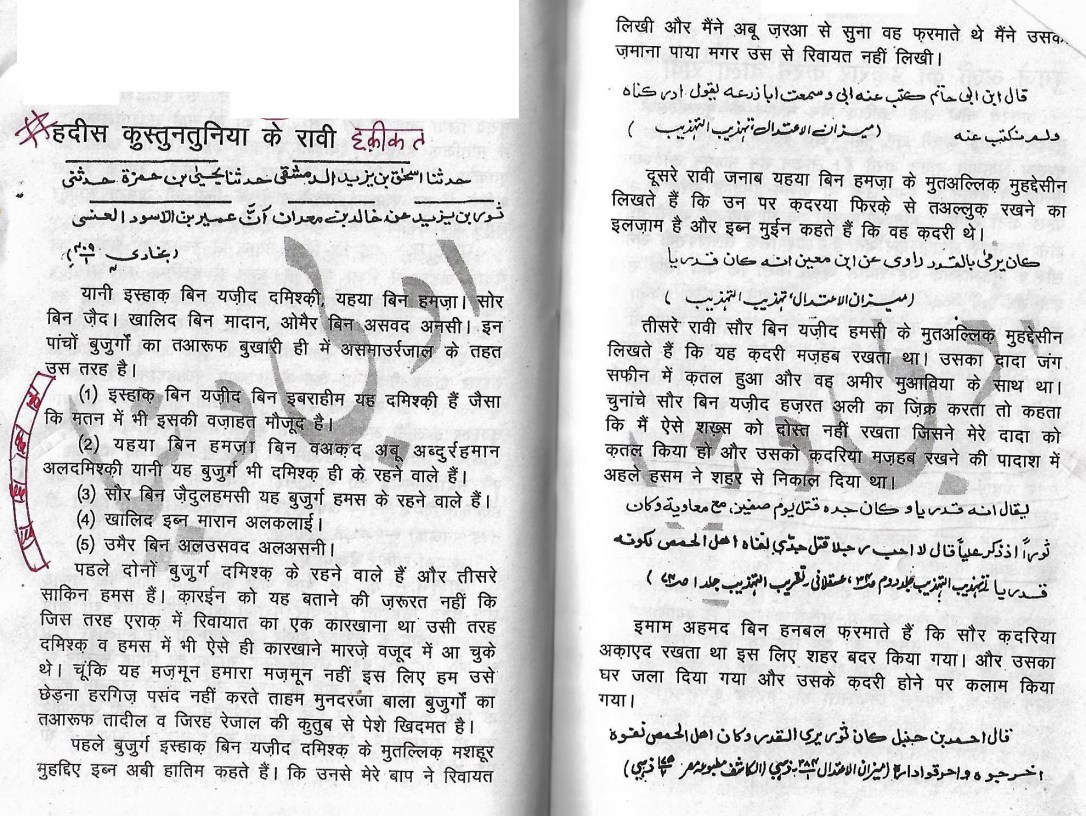 हदीस कुस्तुनतुनिया के रावी हकीकत
حدثنا اسحٰق بن یزید الدمشقی حدثنا یحییٰ بن حمزة حدثنی
ثور بن یزید عن خالد بن معدان انَّ عمیر بن الاسود العنسی
(بخاری
यानी इस्हाक़ बिन यज़ीद दमिश्क़ी, यहया बिन हमज़ा। सोर
बिन ज़ैद। खालिद बिन मादान, ओमैर बिन असवद अनसी। इन
पांचों बुजुर्गों का तआरूफ बुखारी ही में असमाउर्रजाल के तहत
उस तरह है।
(1) इस्हाक़ बिन यज़ीद बिन इबराहीम यह दमिश्क़ी हैं जैसा
कि मतन में भी इसकी वज़ाहत मौजूद है।
(2) यहया बिन हमज़ा बिन वअक़द अबू अब्दुर्रहमान
अलदमिश्क़ी यानी यह बुजुर्ग भी दमिश्क़ ही के रहने वाले हैं।
(3) सौर बिन ज़ैदुलहमसी यह बुजुर्ग हमस के रहने वाले हैं।
(4) खालिद इब्न मारान अलकलाई।
(5) उमैर बिन अलउसवद अलअसनी।
पहले दोनों बुजुर्ग दमिश्क़ के रहने वाले हैं और तीसरे
साकिन हमस हैं। क़ारईन को यह बताने की ज़रूरत नहीं कि
जिस तरह एराक़ में रिवायात का एक कारखाना था उसी तरह
दमिश्क़ व हमस में भी ऐसे ही कारखाने मारज़े वजूद में आ चुके
थे। चूंकि यह मज़मून हमारा मज़मून नहीं इस लिए हम उसे
छेड़ना हरगिज़ पसंद नहीं करते ताहम मुनदरजा बाला बुजुर्गों का
तआरूफ तादील व जिरह रेजाल की कुतुब से पेशे खिदमत है।
पहले बुजुर्ग इस्हाक़ बिन यज़ीद दमिश्क़ के मुतल्लिक़ मशहूर
मुहद्दिए इब्न अबी हातिम कहते हैं। कि उनसे मेरे बाप ने रिवायत
लिखी और मैंने अबू ज़रआ से सुना वह फ़रमाते थे मैंने उसका
ज़माना पाया मगर उस से रिवायत नहीं लिखी।
قال ابن ابی حاتم کتب عنه ابی وسمعت ابا زرعه یقول ادرکناه
ولم نکتب عنه (میزان الاعتدال، تہذیب التہذیب)
दूसरे रावी जनाब यहया बिन हमज़ा के मुतअल्लिक़ मुहद्देसीन
लिखते हैं कि उन पर क़दरया फिरके से तअल्लुक़ रखने का
इलज़ाम है और इब्न मुईन कहते हैं कि वह क़दरी थे।
کان یرمی بالقدد راوی عن ابن معین انه کان قدریا
(میزان الاعتدال، تہذیب التہذیب)
तीसरे रावी सौर बिन यज़ीद हमसी के मुतअल्लिक़ मुहद्देसीन
लिखते हैं कि यह क़दरी मज़हब रखता था। उसका दादा जंग
सफीन में क़तल हुआ और वह अमीर मुआविया के साथ था।
चुनांचे सौर बिन यज़ीद हज़रत अली का ज़िक्र करता तो कहता
कि मैं ऐसे शख़्स को दोस्त नहीं रखता जिसने मेरे दादा को
क़तल किया हो और उसको क़दरिया मज़हब रखने की पादाश में
अहले हसम ने शहर से निकाल दिया था।
یقال انه قدریا و کان جده قتل یوم صفین مع معاویة وکان
ثوراً اذ ذکر علیاً قال لا احب رجلا قتل جدّی لغاه اهل الحمص لکونه
قدریا تہذیب التہذیب جلد دوم عسقلانی، تقریب التہذیب جلد ۱
इमाम अहमद बिन हनबल फ़रमाते हैं कि सौर क़दरिया
अक़ाएद रखता था इस लिए शहर बदर किया गया। और उसका
घर जला दिया गया और उसके क़दरी होने पर कलाम किया
गया।
قال احمد بن حنبل کان ثور یری القدر وکان اهل الحمص نفوه
اخرجوه واحرقوا داره (میزان الاعتدال ذہبی (الکاشف مطبوعہ مصر ذہبی)